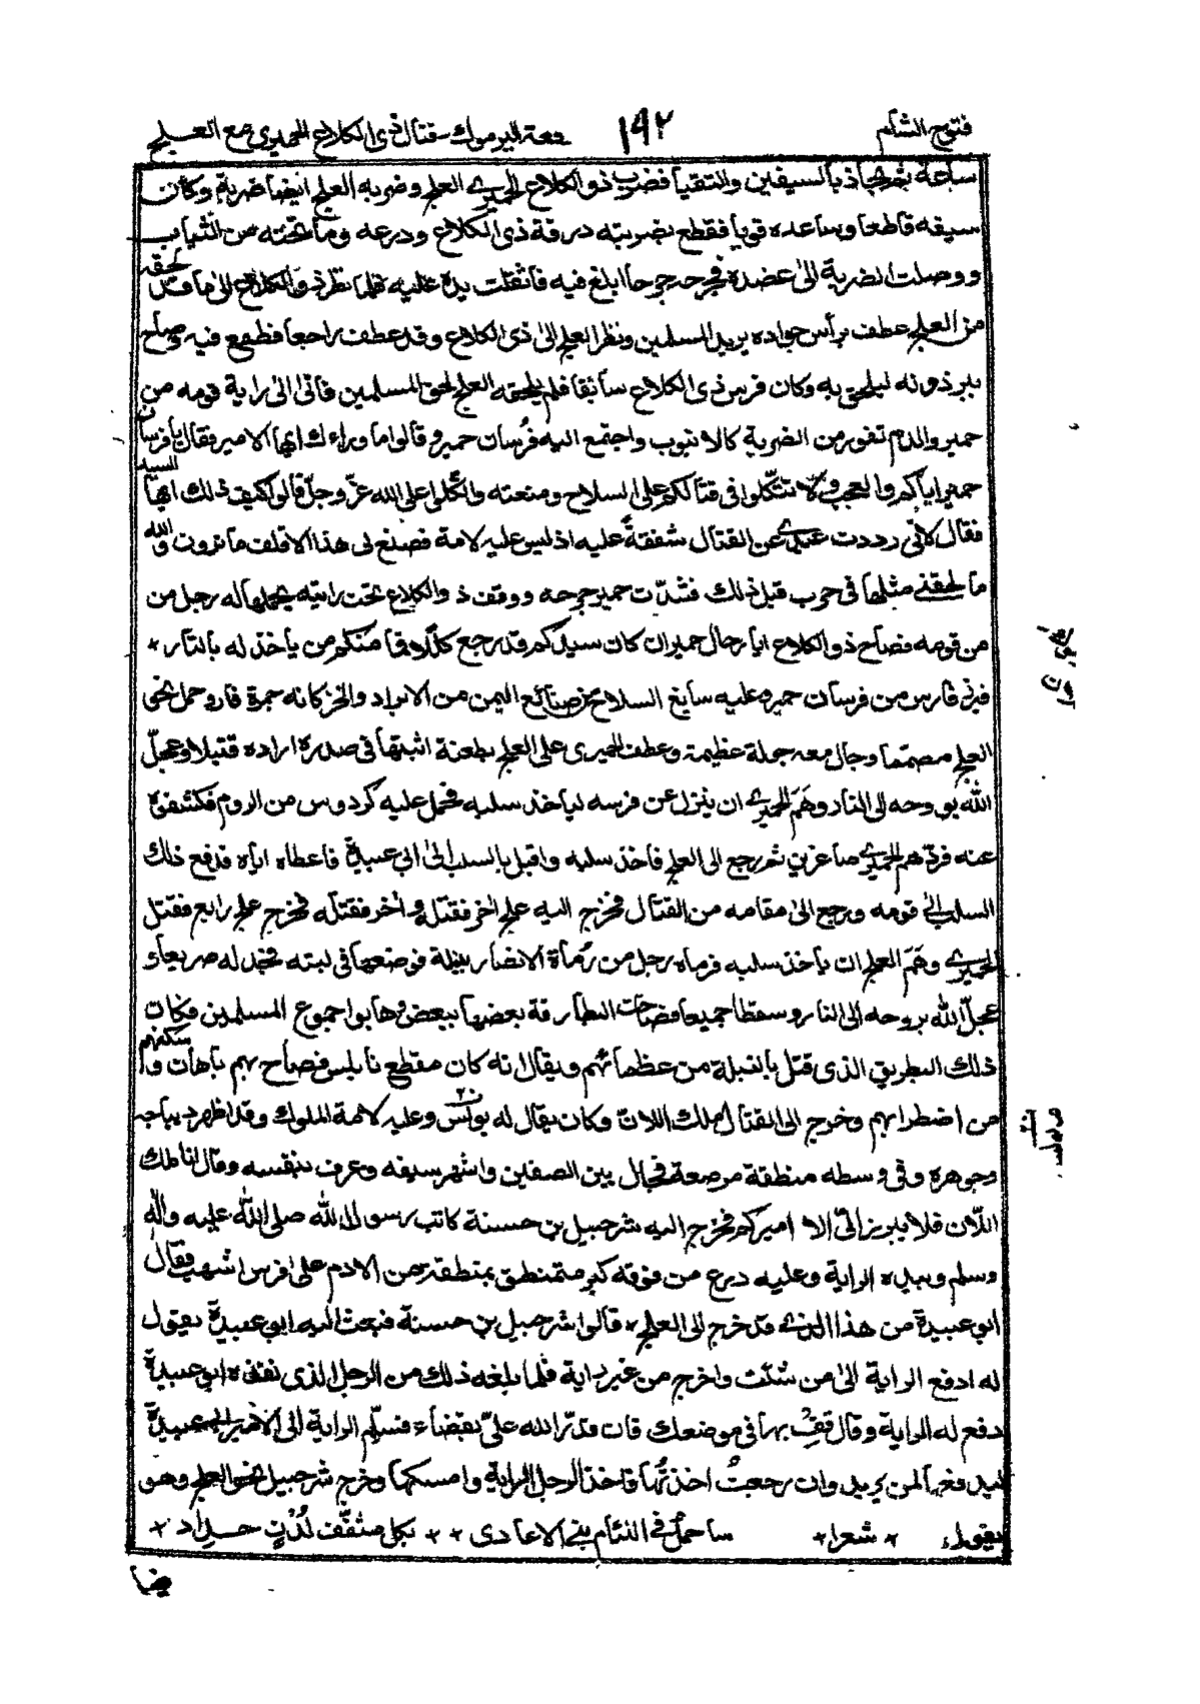 فتوح الشام ١٩٢ وقعة اليرموك - قتال ذي الكلاع الحميري مع العلج
ساعة ثم تجاذبا بالسيفين والتقيا فضرب ذو الكلاع الحميرے العلج وضربه العلج ايضا ضربة وكان
سيفه قاطعا وساعده قويا فقطع بضربته درقة ذى الكلاع ودرعه وما تحته من الثياب
ووصلت الضربة الى عضده فجرحه جرحا ابلغ فيه فاثقلت يده عليه فلما نظر ذو الكلاع الى ما قد لحقه
من العلج عطف براس جواده يريد المسلمين ونظر العلج الى ذى الكلاع وقد عطف راجعا فطمع فيه وصاح
ببرذونه ليلحق به وكان فرس ذى الكلاع سابقا فلم يلحقه العلج لحق المسلمين فاتى الى راية قومه من
حمير والدم تفور من الضربة كالانبوب واجتمع اليه فرسان حمير وقالوا ما وراءك ايها الامير فقال يا فرسان
حمير اياكم والعجب ولا تتكلوا فى قتالكم على السلاح ومنعته واتكلوا على الله عز وجل قالوا كيف ذلك ايها السيد
فقال لانى رددت عبدے عن القتال شفقة عليه اذ ليس عليه لامة فصنع بى هذا الاقلف ما ترون والله
ما لحقنى مثلها فى حرب قبل ذلك فشدت حمير جرحه ووقف ذو الكلاع تحت رايته يحملها له رجل من
من قومه فصاح ذو الكلاع ايا رجال حمير ان كان سيدكم قد رجع كلالا فما منكم من ياخذ له بالثار +
فبرز فارس من فرسان حمير وعليه سابغ السلاح من صنائع اليمن من الابراد والخز كانه جمرة نار وحمل نحو
العلج مصمما وجال معه جولة عظيمة وعطف الحميرى على العلج بطعنة اثبتها فى صدره ارداه قتيلا وعجل
الله بروحه الى النار وهم الحميرے ان ينزل عن فرسه لياخذ سلبه فحمل عليه كردوس من الروم فكشفوه
عنه فردهم الحميرے صاغرين ثم رجع الى العلج فاخذ سلبه واقبل بالسلب الى ابى عبيدة فاعطاه اياه فدفع ذلك
السلب الى قومه ورجع الى مقامه من القتال فخرج اليه علج اخر فقتله واخر فقتله فخرج علج رابع فقتل
الحميرے وهم العلج ان ياخذ سلبه فرماه رجل من رماة الانصار بنبلة فوضعها فى لبته فجندله صريعا و
عجل الله بروحه الى النار وسقطا جميعا فصاحت البطارقة بعضها ببعض وهابوا جموع المسلمين فكان
ذلك البطريق الذى قتل بالنبلة من عظمائهم ويقال انه كان مقطع نابلس فصاح بهم باهان وسكنهم
من اضطرابهم وخرج الى القتال ملك اللان وكان يقال له بولس وعليه لامة الملوك وقد اظهر ديباجه
وجوهره وفى وسطه منطقة مرصعة فجال بين الصفين واشهر سيفه وعرف بنفسه وقال انا ملك
اللان فلا يبرز الى الا اميركم فخرج اليه شرحبيل بن حسنة كاتب رسول الله صلى الله عليه واله
وسلم وبيده الراية وعليه درع من فوقه كبر متمنطق بمنطقة من الادم على فرس اشهب فقال
ابو عبيدة من هذا الذے قد خرج الى العلج قالوا شرحبيل بن حسنة فبعث اليه ابو عبيدة يقول
له ادفع الراية الى من شئت واخرج من غير راية فلما بلغه ذلك من الرجل الذى نفذه ابو عبيدة
دفع له الراية وقال قف بها فى موضعك فان قدر الله على بقضاء فسلم الراية الى الامير ابى عبيدة
ليدفعها لمن يريد وان رجعت اخذتها فاخذ الرجل الراية وامسكها وخرج شرحبيل نحو العلج وهو
يقول + شعرا + ساحمل فى اللئام بنى الاعادى + + بكل مثقف لدن حداد +